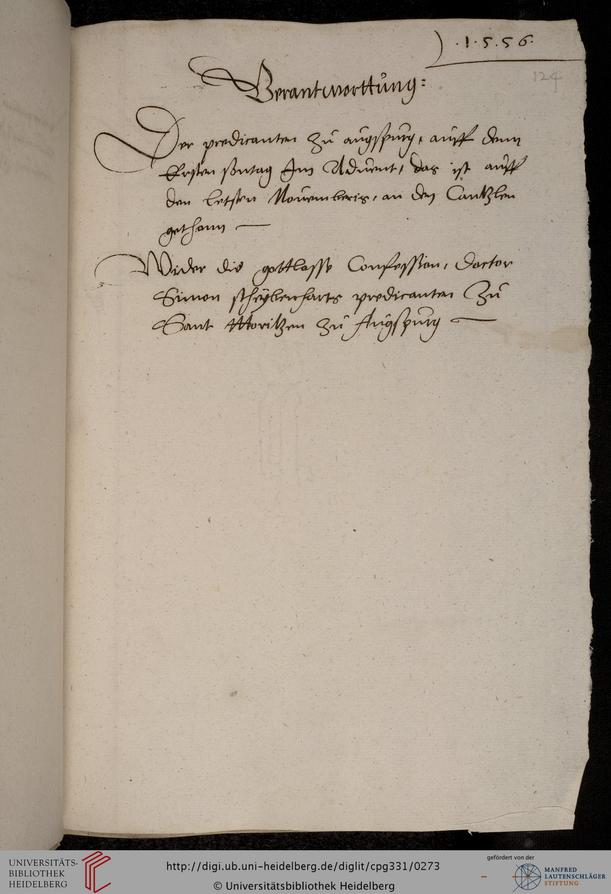 ) .1.5.5.6.
124
Verantworttung:
Der predicanten zu augspurg, auff denn
Ersten sontag Jm Aduent, das ist auff
den letsten Nouembris, an den Cantzlen
gethann —
Wider die gottlosse Confession, doctor
Simon scheybenharts predicanten Zu
Sant Moritzen zu Augspurg —
UNIVERSITÄTS-
BIBLIOTHEK
HEIDELBERG
http://digi.ub.uni-heidelberg.de/diglit/cpg331/0273
© Universitätsbibliothek Heidelberg
gefördert von der
MANFRED
LAUTENSCHLÄGER
STIFTUNG